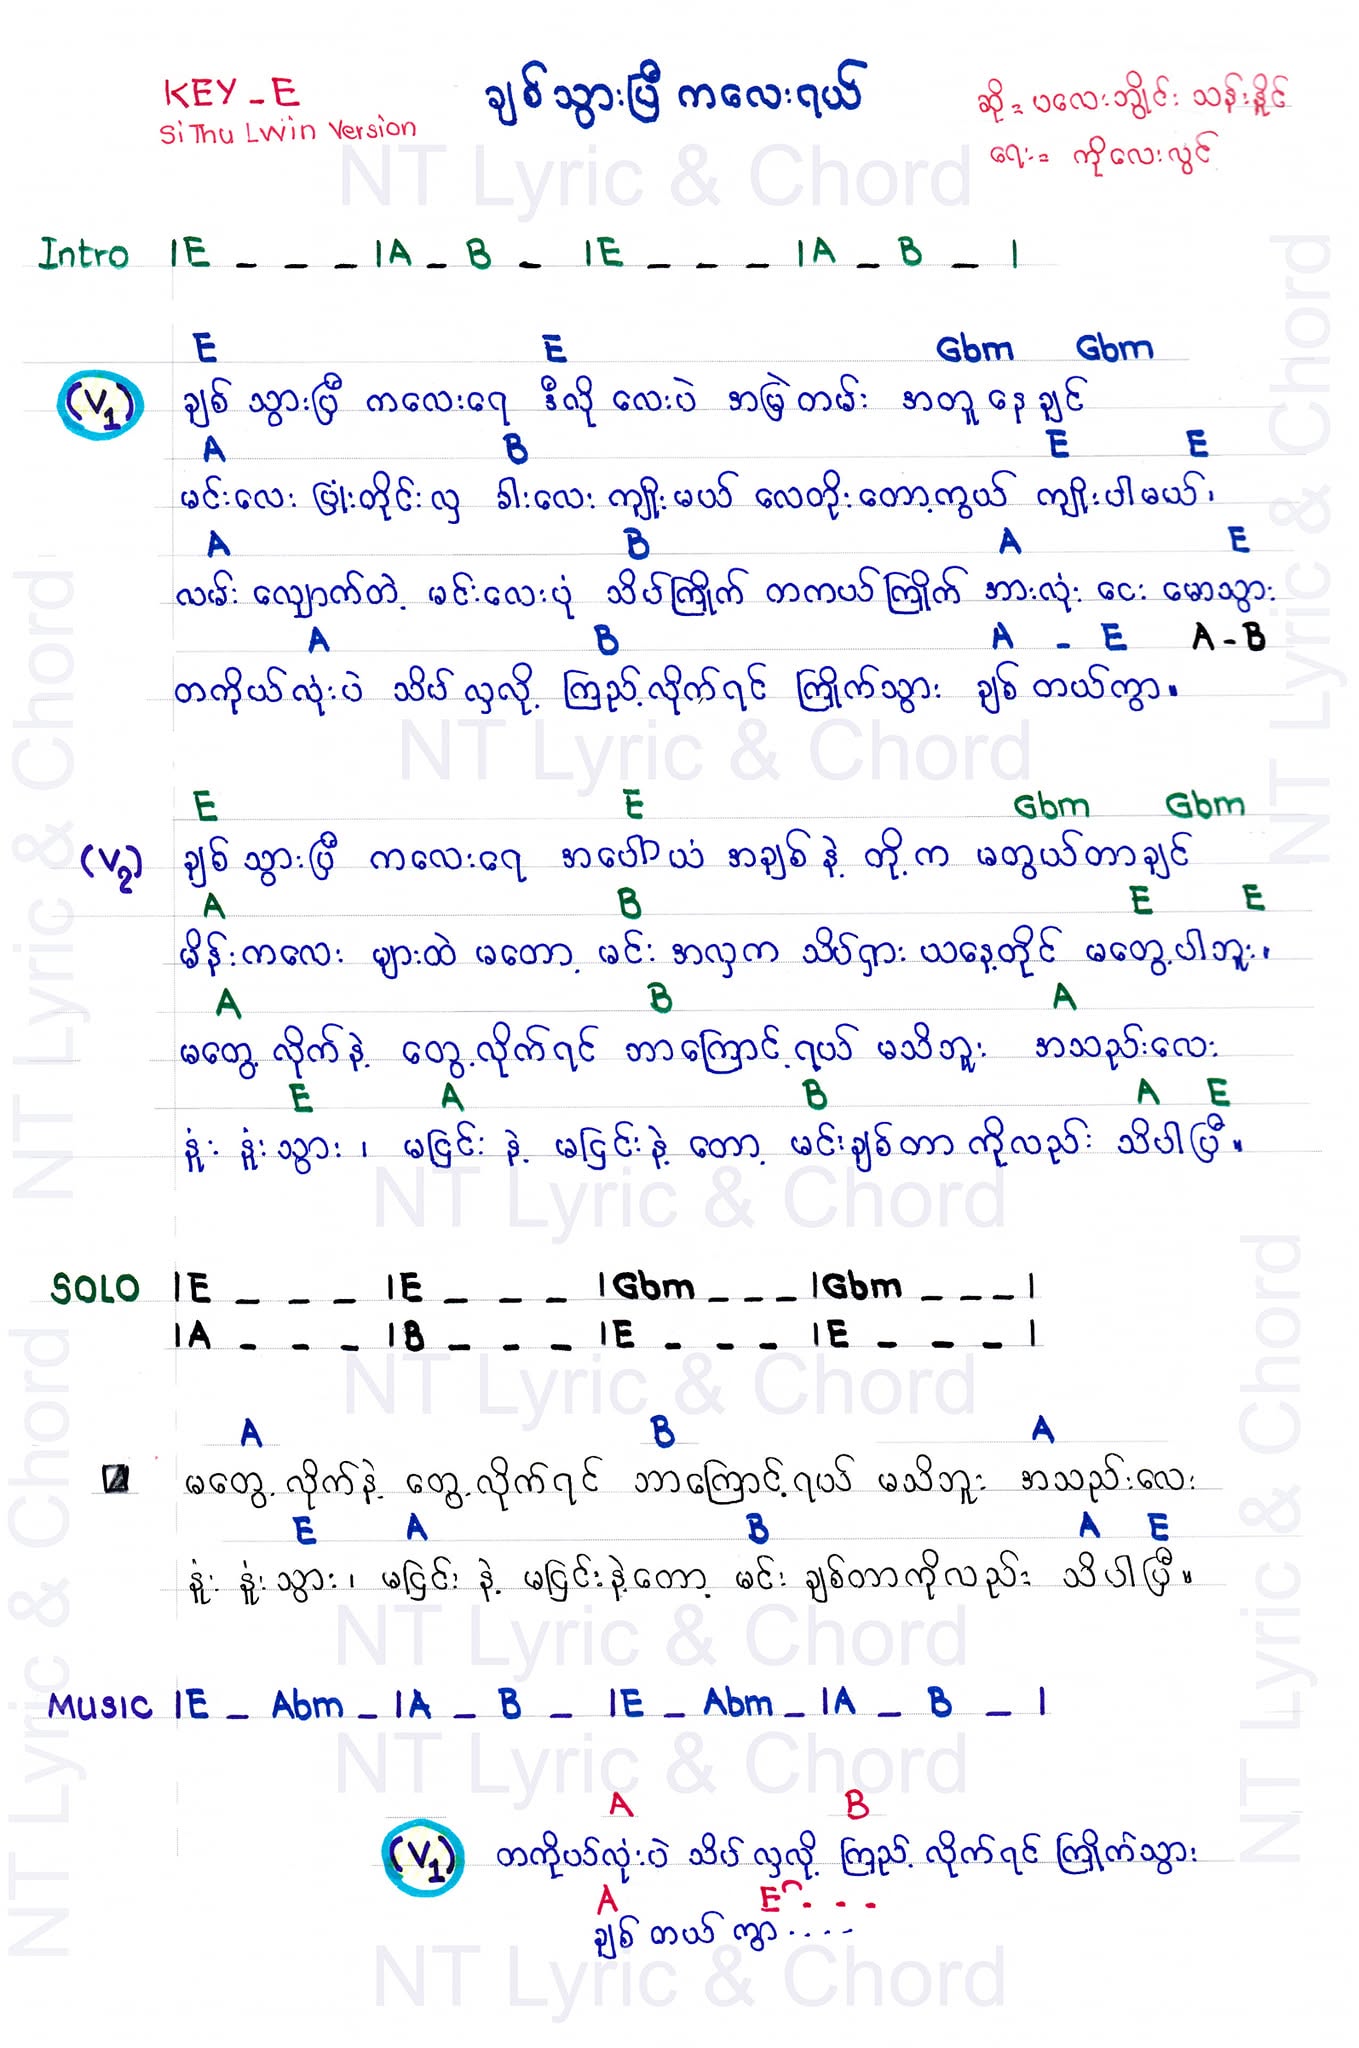 KEY - E
ချစ်သွားပြီ ကလေးရယ်
ဆို = ပလေးဘွိုင်း သန်းနိုင်
Si Thu Lwin Version
ရေး = ကိုလေးလွင်
NT Lyric & Chord
Intro |E _ _ _ |A _ B _ |E _ _ _ |A _ B _ |
E E Gbm Gbm
(V1) ချစ် သွားပြီ ကလေးရေ ဒီလို လေးပဲ အမြဲတမ်း အတူ နေချင်
A B E E
မင်းလေး ပြုံးတိုင်းလှ ခါးလေး ကျိုးမယ် လေတိုးတော့ကွယ် ကျိုးပါမယ်၊
A B A E
လမ်း လျှောက်တဲ့ မင်းလေးပုံ သိပ်ကြိုက် တကယ်ကြိုက် အားလုံး ငေး မောသွား
A B A - E A - B
တကိုယ်လုံးပဲ သိပ် လှလို့ ကြည့်လိုက်ရင် ကြိုက်သွား ချစ် တယ်ကွာ။
NT Lyric & Chord
E E Gbm Gbm
(V2) ချစ် သွားပြီ ကလေးရေ အပေါ်ယံ အချစ်နဲ့ တို့က မတွယ်တာချင်
A B E E
မိန်းကလေး များထဲ မတော့ မင်း အလှက သိပ်ရှား ယနေ့တိုင် မတွေ့ပါဘူး၊
A B A
မတွေ့လိုက်နဲ့ တွေ့လိုက်ရင် ဘာကြောင့်ရယ် မသိဘူး အသည်းလေး
E A B A E
နုံး နုံးသွား၊ မငြင်း နဲ့ မငြင်းနဲ့ တော့ မင်းချစ်တာ ကိုလည်း သိပါပြီ။
NT Lyric & Chord
SOLO |E _ _ _ |E _ _ _ |Gbm _ _ _ |Gbm _ _ _ |
|A _ _ _ |B _ _ _ |E _ _ _ |E _ _ _ |
NT Lyric & Chord
A B A
မတွေ့လိုက်နဲ့ တွေ့လိုက်ရင် ဘာကြောင့်ရယ် မသိဘူး အသည်းလေး
E A B A E
နုံး နုံးသွား၊ မငြင်း နဲ့ မငြင်းနဲ့တော့ မင်း ချစ်တာကိုလည်း သိပါပြီ။
NT Lyric & Chord
MUSIC |E _ Abm _ |A _ B _ |E _ Abm _ |A _ B _ |
NT Lyric & Chord
A B
(V1) တကိုယ်လုံးပဲ သိပ် လှလို့ ကြည့် လိုက်ရင် ကြိုက်သွား
A E - - -
ချစ် တယ် ကွာ ....
NT Lyric & Chord
NT Lyric & Chord
NT Lyric & Chord
NT Lyric & Chord
NT Lyric & Chord